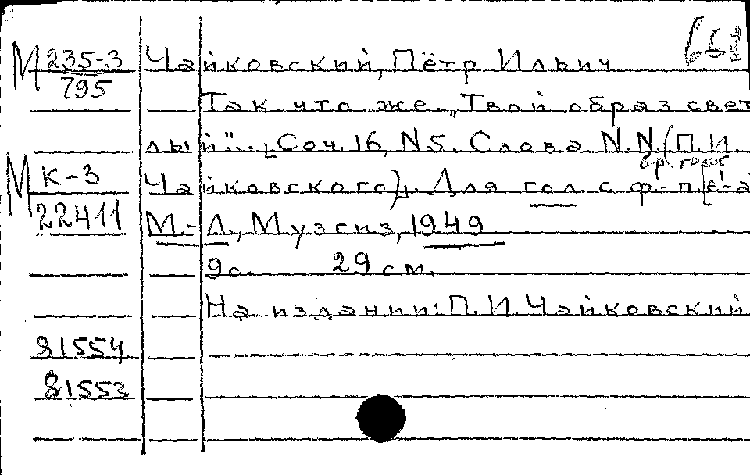 М 235-3 Чайковский, Пётр Ильич
795 Так что же. „Твой образ свет
лый". [Соч. 16, N5. Слова N.N. (П.И.
М К-3 Чайковского)]. Для гол. с ф-п.
22411 М.-Л., Музгиз, 1949
9с. 29 см.
На издании: П.И. Чайковский
81554
81553